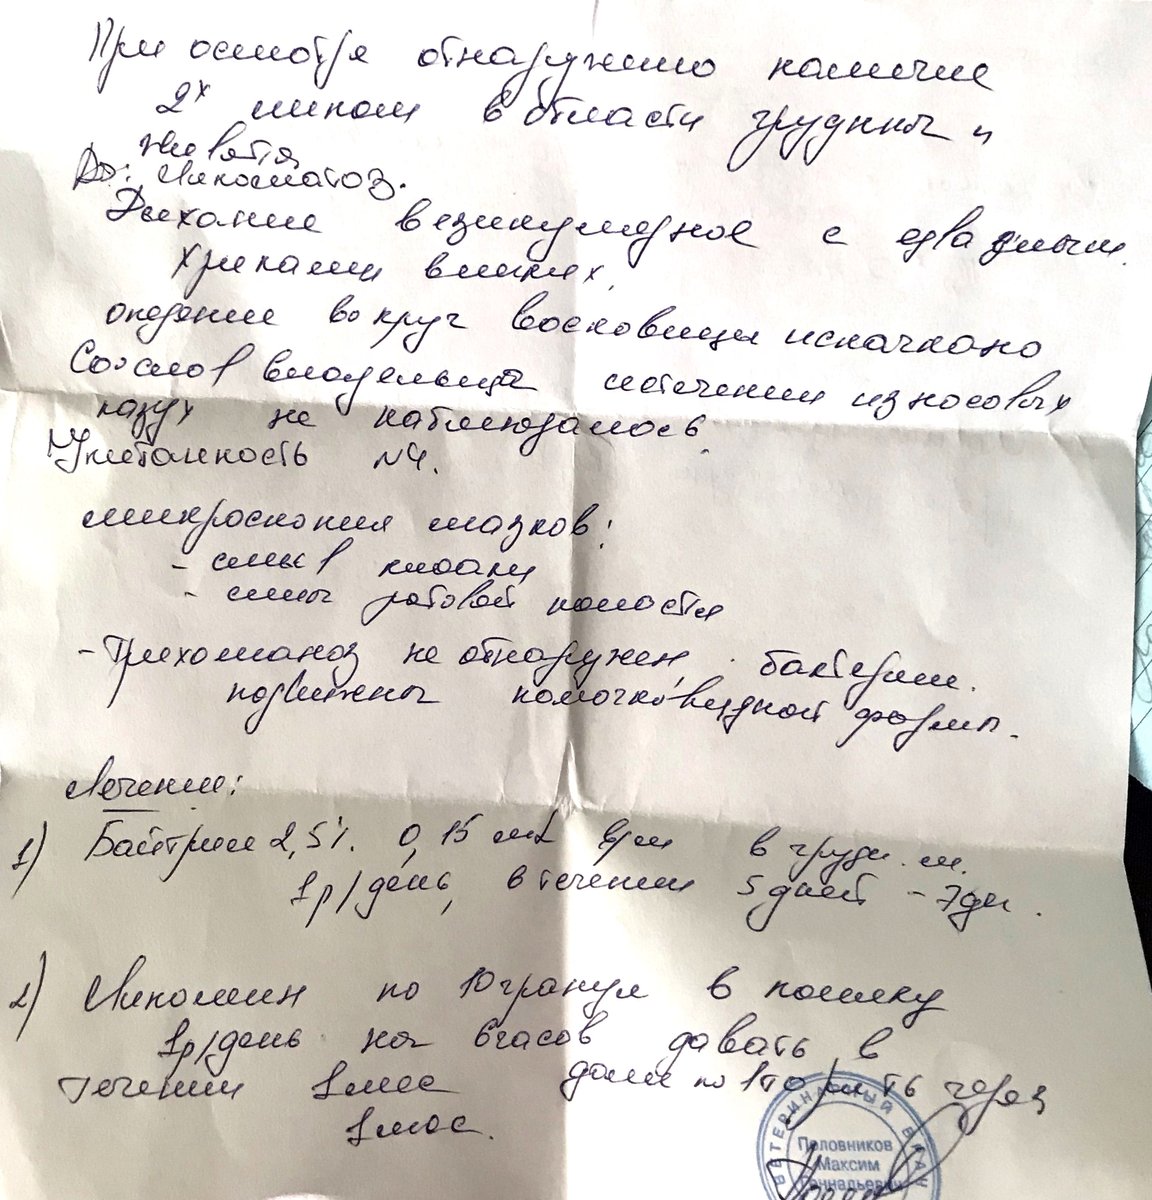 При осмотре обнаружено наличие
2х липом в области грудины и
живота.
Ds: Липоматоз.
Дыхание везикулярное с едва
хрипами влажных.
оперение вокруг восковицы испачкано
Со слов владельца истечении из носовых
пазух не наблюдалось.
Упитанность N4.
микроскопия мазков:
- смыв клоаки
- смыв ротовой полости
- Трихоманоз не обнаружен, бактерии.
подвижны палочковидной формы.
Лечение:
1) Байтрил 2,5%. 0,15 мл в/м в груди. м.
1р/день, в течении 5 дней - 7дн.
2) Липомин по 10 гранул в поилку
1р/день на 6 часов давать в
течении 1мес далее повторить через
1мес.
ВЕТЕРИНАРНЫЙ ВРАЧ
Половников
Максим
Геннадьевич